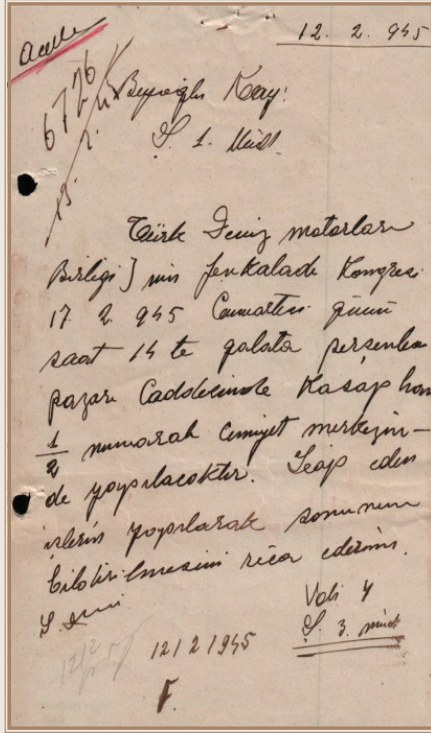 12. 2. 945
Acele
6776
Beyoğlu Kay:
Ş 1. Müd.
Türk Deniz motorları
Birliği] nin fevkalade Kongresi
17 2 945 Cumartesi günü
saat 14 te galata perşembe
pazarı Caddesinde Kasap han
1/2 numaralı Cemiyet merkezin-
de yapılacaktır. İcap eden
işlerin yapılarak sonunun
bildirilmesini rica ederim.
Vali Y
Ş. 3. müd
12/2/945
12/2/1945